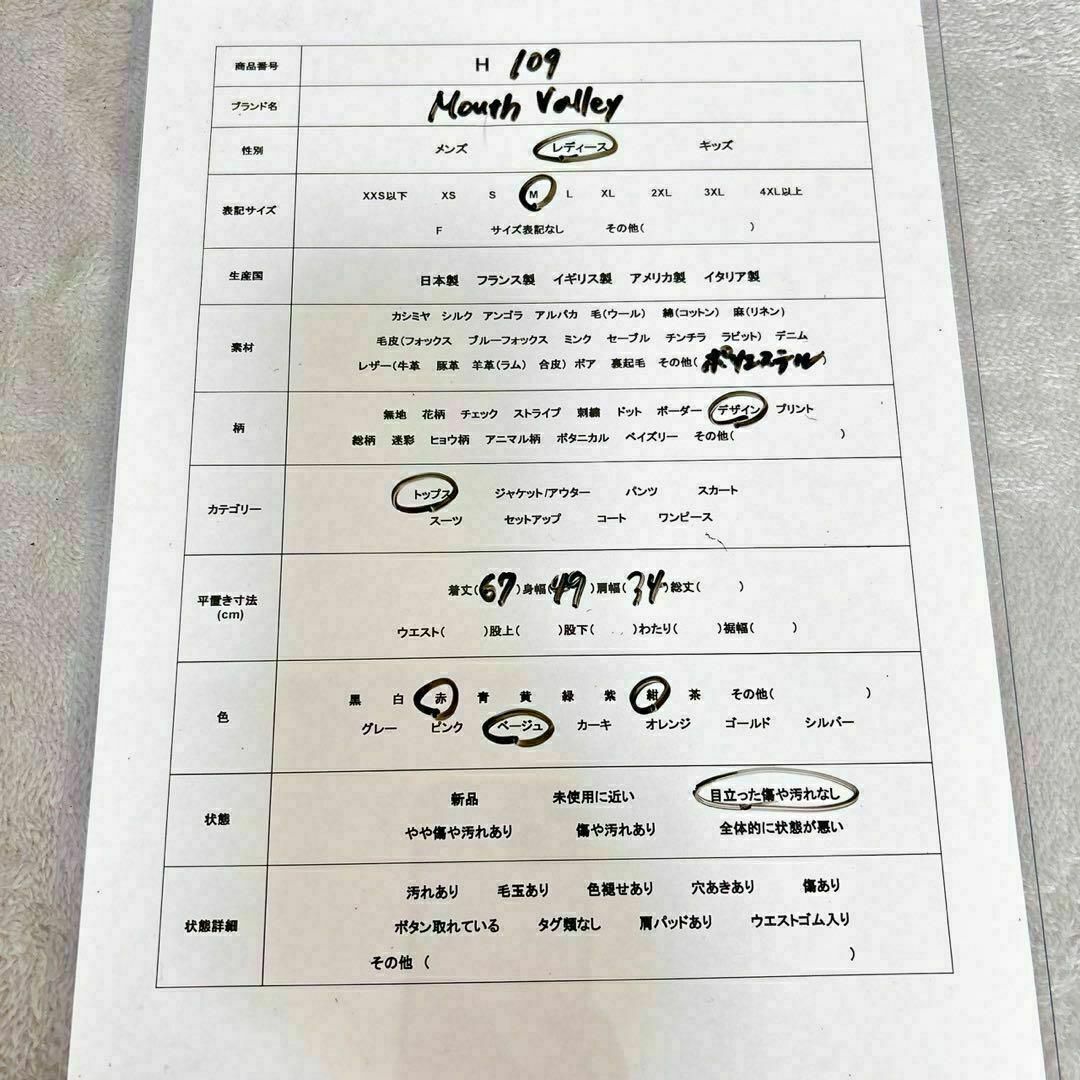 商品番号 H 109
ブランド名 Mouth Valley
性別 メンズ レディース キッズ
表記サイズ
XXS以下 XS S M L XL 2XL 3XL 4XL以上
F サイズ表記なし その他( )
生産国 日本製 フランス製 イギリス製 アメリカ製 イタリア製
素材
カシミヤ シルク アンゴラ アルパカ 毛(ウール) 綿(コットン) 麻(リネン)
毛皮(フォックス ブルーフォックス ミンク セーブル チンチラ ラビット) デニム
レザー(牛革 豚革 羊革(ラム) 合皮) ボア 裏起毛 その他(ポリエステル)
柄
無地 花柄 チェック ストライプ 刺繍 ドット ボーダー デザイン プリント
総柄 迷彩 ヒョウ柄 アニマル柄 ボタニカル ペイズリー その他( )
カテゴリー
トップス ジャケット/アウター パンツ スカート
スーツ セットアップ コート ワンピース
平置き寸法
(cm)
着丈(67)身幅(49)肩幅(34)総丈( )
ウエスト( )股上( )股下( )わたり( )裾幅( )
色
黒 白 赤 青 黄 緑 紫 紺 茶 その他( )
グレー ピンク ベージュ カーキ オレンジ ゴールド シルバー
状態
新品 未使用に近い 目立った傷や汚れなし
やや傷や汚れあり 傷や汚れあり 全体的に状態が悪い
状態詳細
汚れあり 毛玉あり 色褪せあり 穴あきあり 傷あり
ボタン取れている タグ類なし 肩パッドあり ウエストゴム入り
その他 ( )